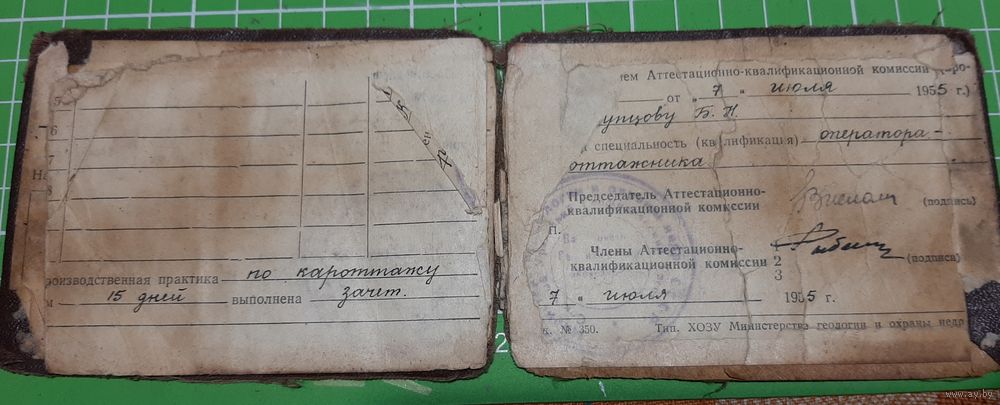 5
6
На
8
оизводственная практика по кароттажу
м 15 дней выполнена зачет.
ем Аттестационно-квалификационной комиссии (про-
от „ 7 " июля 1955 г.)
упцову Б. Н.
специальность (квалификация) оператора-
оттажника
Председатель Аттестационно-
квалификационной комиссии (подпись)
П.
Члены Аттестационно- 1
квалификационной комиссии 2 (подписа)
3
7 " июля 1955 г.
к. № 350. Тип. ХОЗУ Министерства геологии и охраны недр
www.ay.by